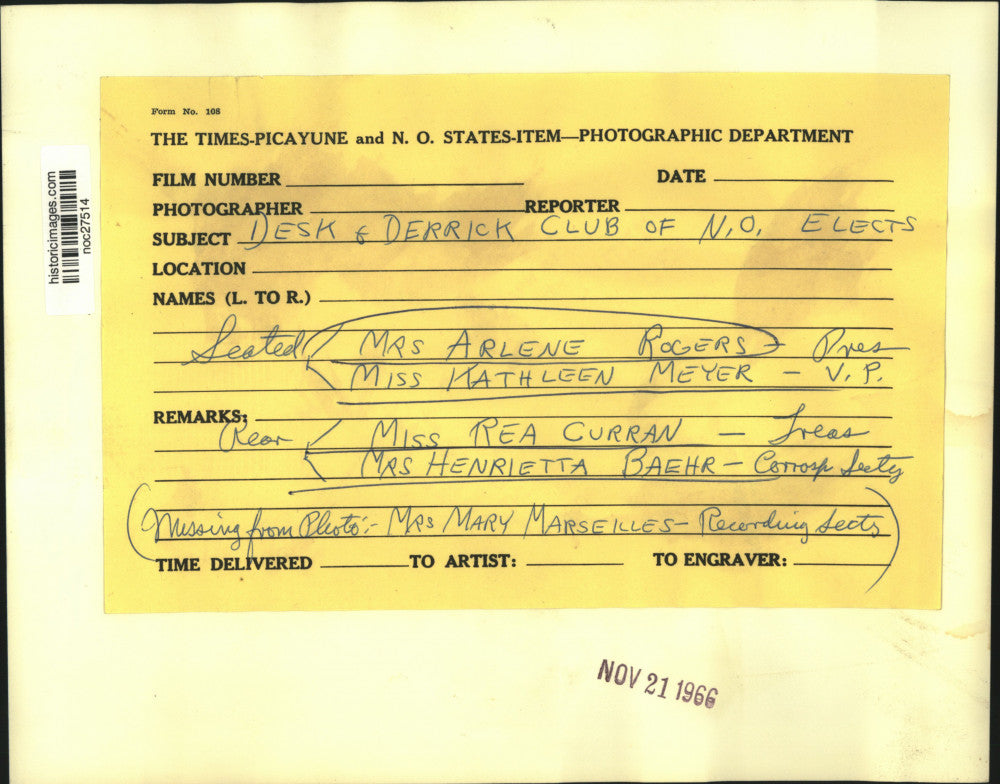 Form No. 108
THE TIMES-PICAYUNE and N. O. STATES-ITEM—PHOTOGRAPHIC DEPARTMENT
FILM NUMBER DATE
PHOTOGRAPHER REPORTER
SUBJECT DESK & DERRICK CLUB OF N.O. ELECTS
LOCATION
NAMES (L. TO R.)
Seated MRS ARLENE ROGERS - Pres
MISS KATHLEEN MEYER - V.P.
REMARKS:
Rear MISS REA CURRAN - Treas
MRS HENRIETTA BAEHR - Corrosp Secty
(Missing from Photo:- MRS MARY MARSEILLES - Recording Secty)
TIME DELIVERED TO ARTIST: TO ENGRAVER:
NOV 21 1966
historicimages.com
noc27514